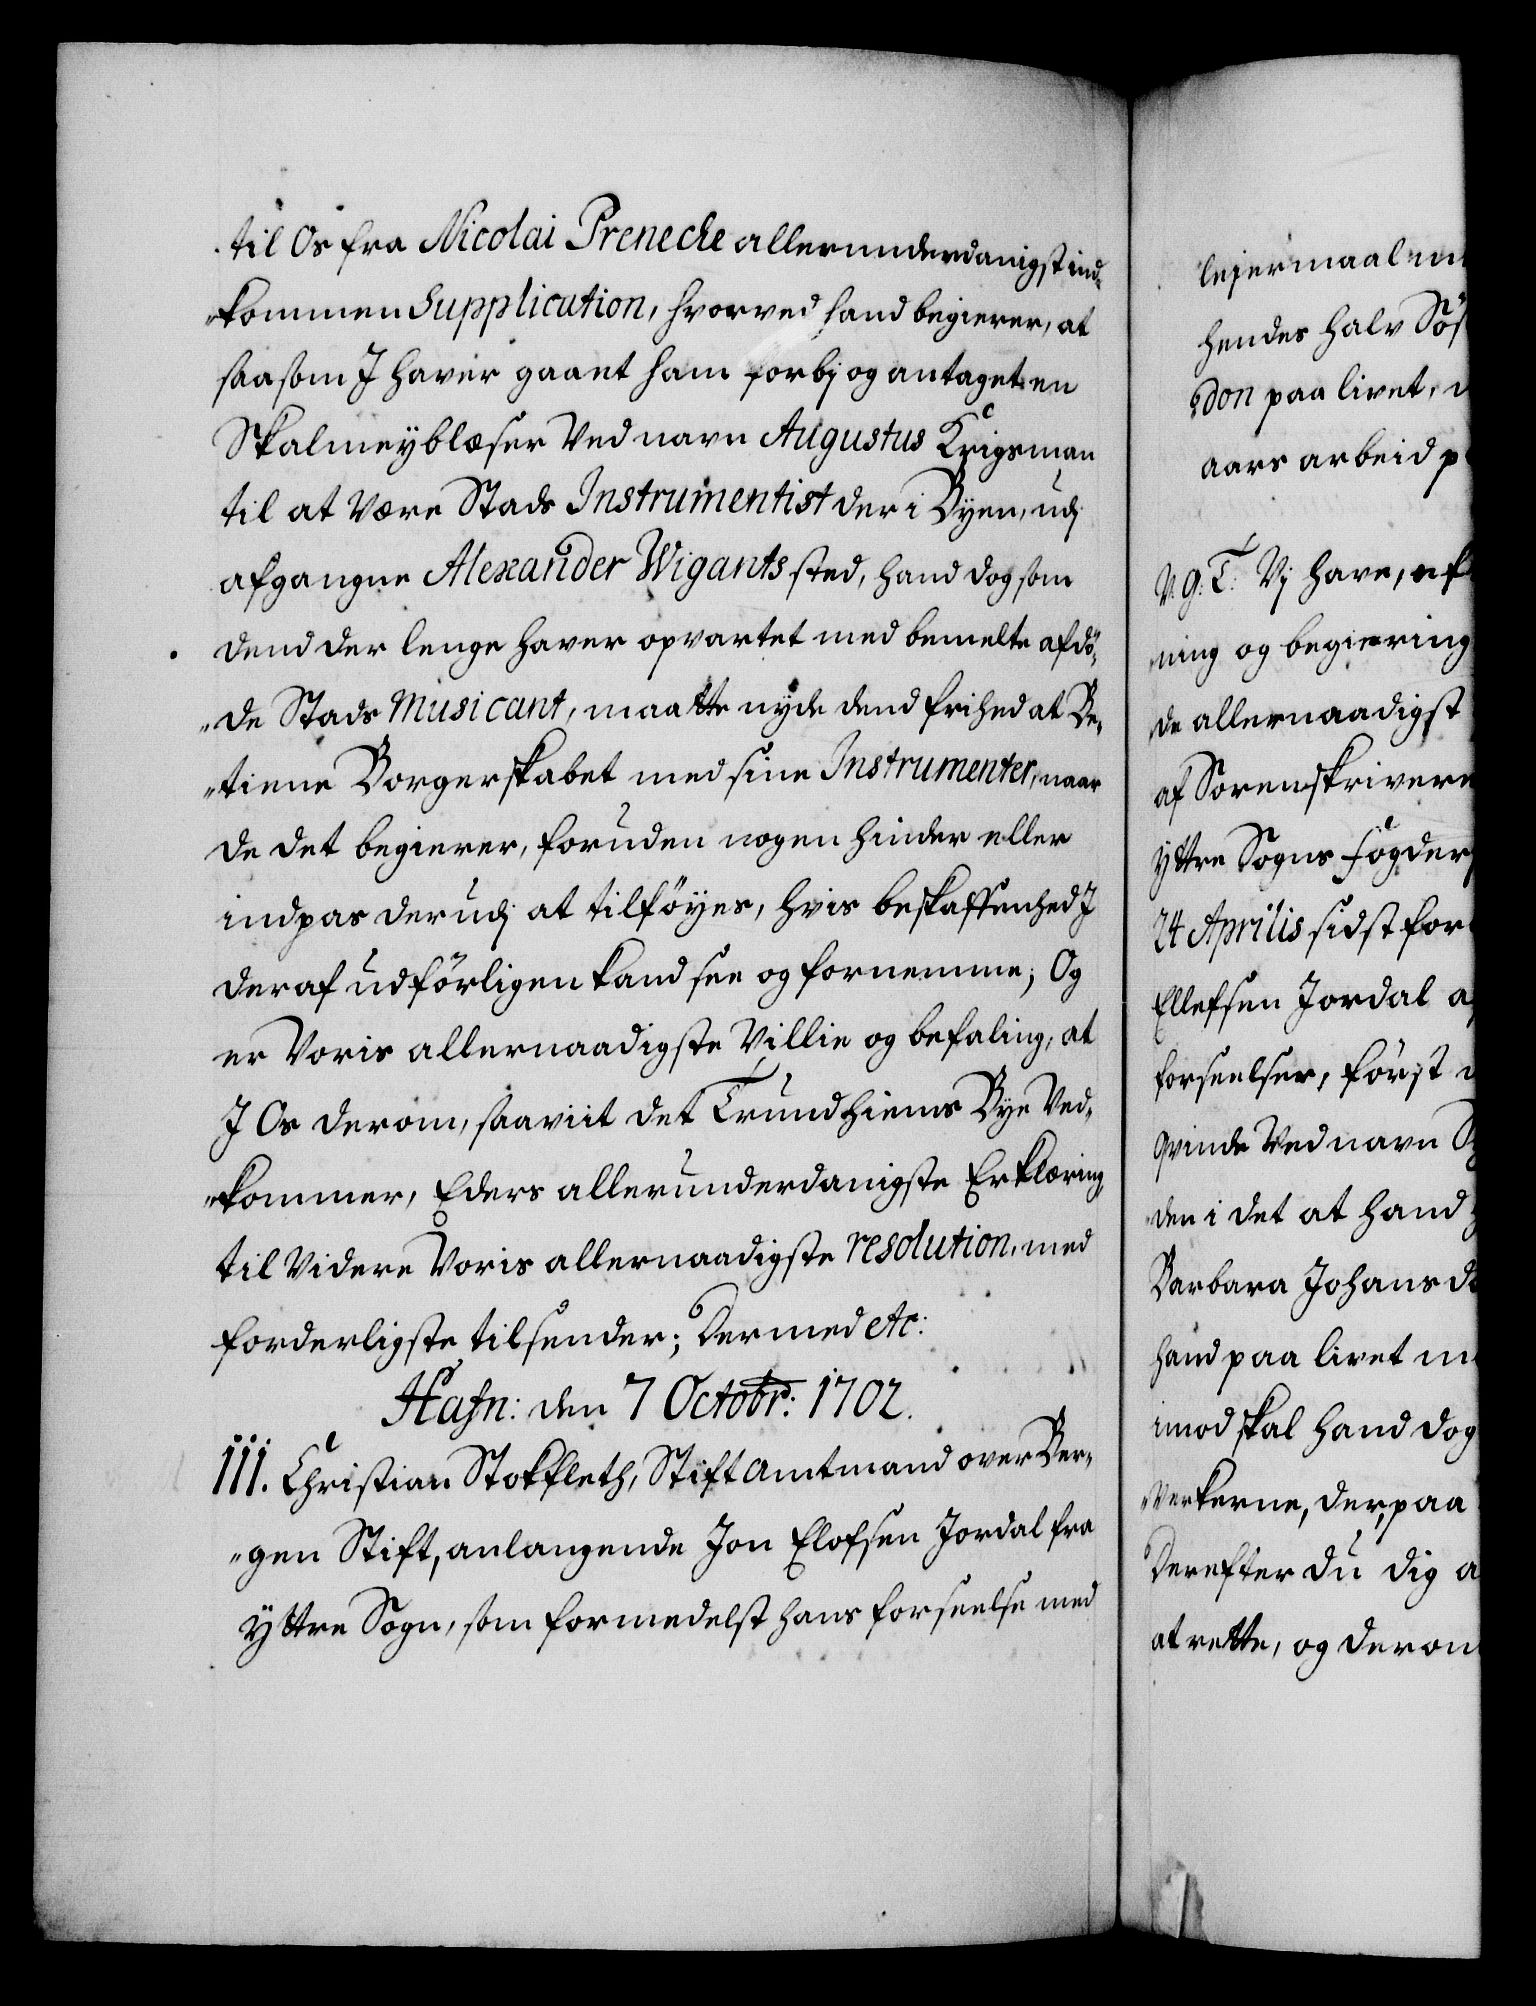 til Os fra Nicolai Preneche allerunderdanigst ind-
„kommen Supplication, hvorved hand begierer, at
saasom J haver gaaet ham forbj og antaget en
Skalmeyblæser Ved navn Augustus Krigsman
til at Være Stads Instrumentist der i Byen, udj
afgangne Alexander Wigants sted, hand dog som
dend der lenge haver opvartet med bemelte afdö-
„de Stads Musicant, maatte nyde dend frihed at Be-
„tiene Borgerskabet med sine Instrumenter, naar
de det begierer, foruden nogen hinder eller
indpas derudj at tilföyes, hvis beskaffenhed J
deraf udförligen kand see og fornemme; Og
er Voris allernaadigste Villie og befaling, at
J Os derom, saaviit det Trundhiems Bye Ved-
„kommer, Eders allerunderdanigste Erklæring,
til Videre Voris allernaadigste resolution, med
forderligste tilsender; Dermed etc:
Hafn: den 7 Octobr: 1702.
111. Christian Stokfleth, Stiftamtmand over Ber-
„gen Stift, anlangende Jon Elofsen Jordal fra
Yttre Sogn, som formedelst hans forseelse med
lejermaal
hendes halv Sös
don paa livet,
aars arbeid p
V. G. T. Vj have, eft
ning og begiering
de allernaadigst
af Sorenskrivere
Yttre Sogns Fogderj
24 Aprilis sidst for
Ellefsen Jordal a
forseelser, först
Qvinde Ved navn
den i det at hand
Barbara Johansd
hand paa livet m
imod skal hand dog
Verkerne, der, paa
Derefter du dig a
at rette, og derom